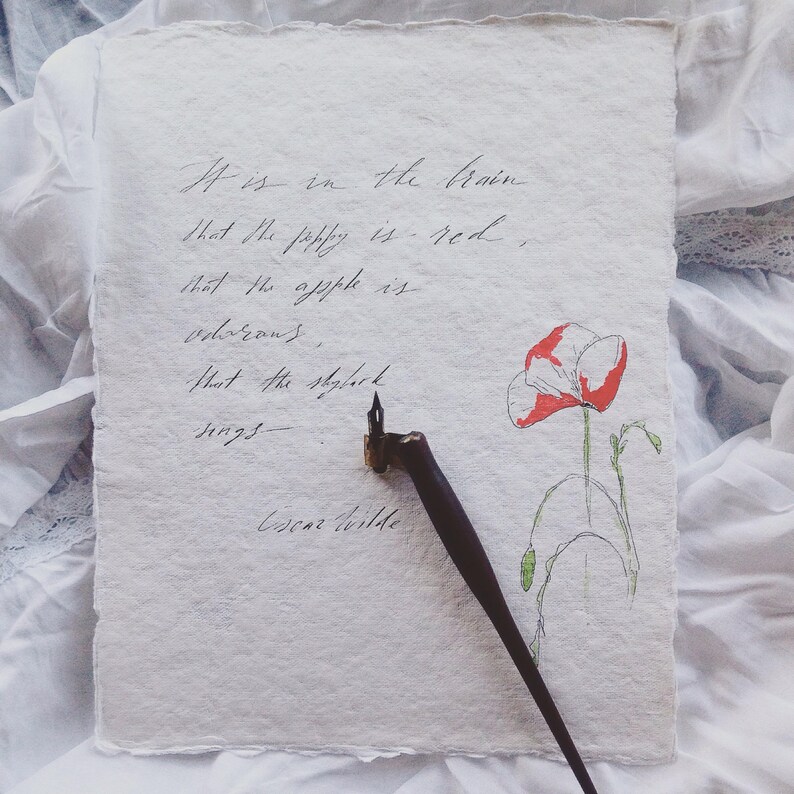 It is in the brain
that the poppy is red,
that the apple is
odorous,
that the skylark
sings.
Oscar Wilde